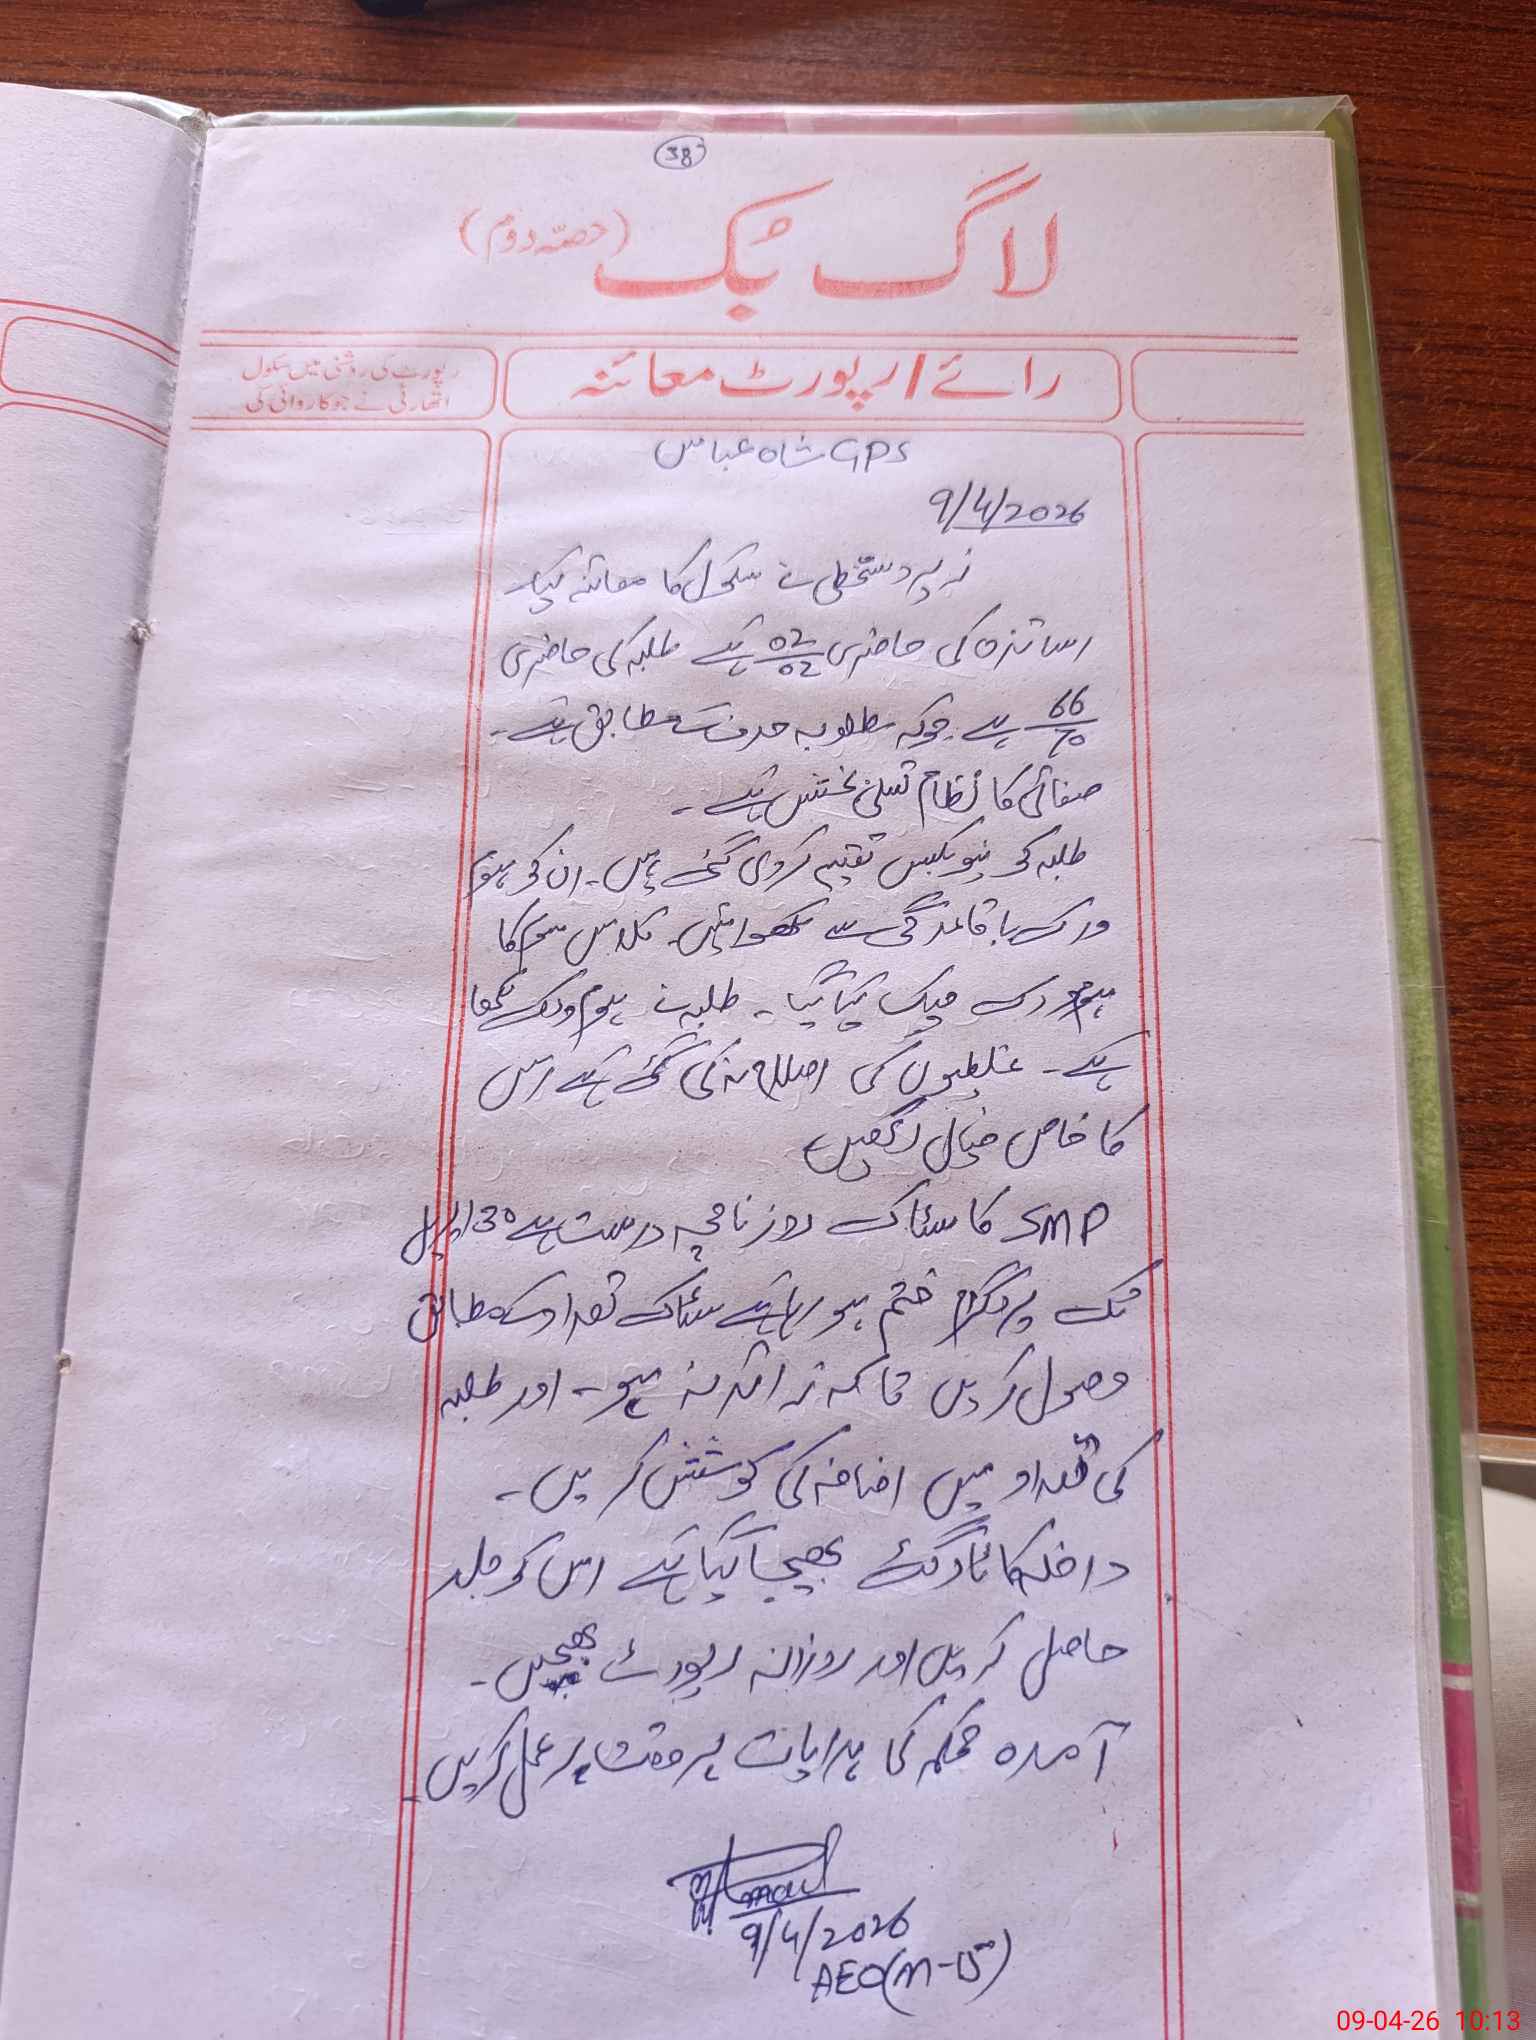 38
لاگ بُک (حصّہ دوم)
رائے / رپورٹ معائنہ
رپورٹ کی روشنی میں سکول
اتھارٹی نے جو کاروائی کی
GPS شاہ عباس
9/4/2026
زیر دستخطی نے سکول کا معائنہ کیا۔
اساتذہ کی حاضری 02/02 ہے طلبہ کی حاضری
66/70 ہے جوکہ مطلوبہ ہدف کے مطابق ہے۔
صفائی کا نظام تسلی بخش ہے۔
طلبہ کو نیو بکس تقسیم کر دی گئی ہیں۔ ان کو ہوم
ورک باقاعدگی سے لکھوائیں۔ کلاس سوم کا
ہوم ورک چیک کیا گیا۔ طلبہ نے ہوم ورک لکھا
ہے۔ غلطیوں کی اصلاح نہ کی گئی ہے اس
کا خاص خیال رکھیں
SMP کا سٹاک روزنامچہ درست ہے 30 اپریل
تک پروگرام ختم ہو رہا ہے سٹاک تعداد کے مطابق
وصول کریں تاکہ زائد نہ ہو۔ اور طلبہ
کی تعداد میں اضافہ کی کوشش کریں۔
داخلہ کا ٹارگٹ بھیجا گیا ہے اس کو جلد
حاصل کریں اور روزانہ رپورٹ بھیجیں۔
آمدہ محکمہ کی ہدایات بروقت پر عمل کریں۔
9/4/2026
AEO(M-15)
09-04-26 10:13